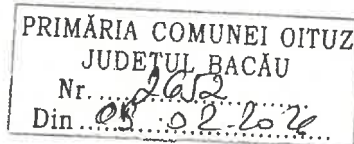 PRIMĂRIA COMUNEI OITUZ
JUDEȚUL BACĂU
Nr. 2652
Din 05.02.2026